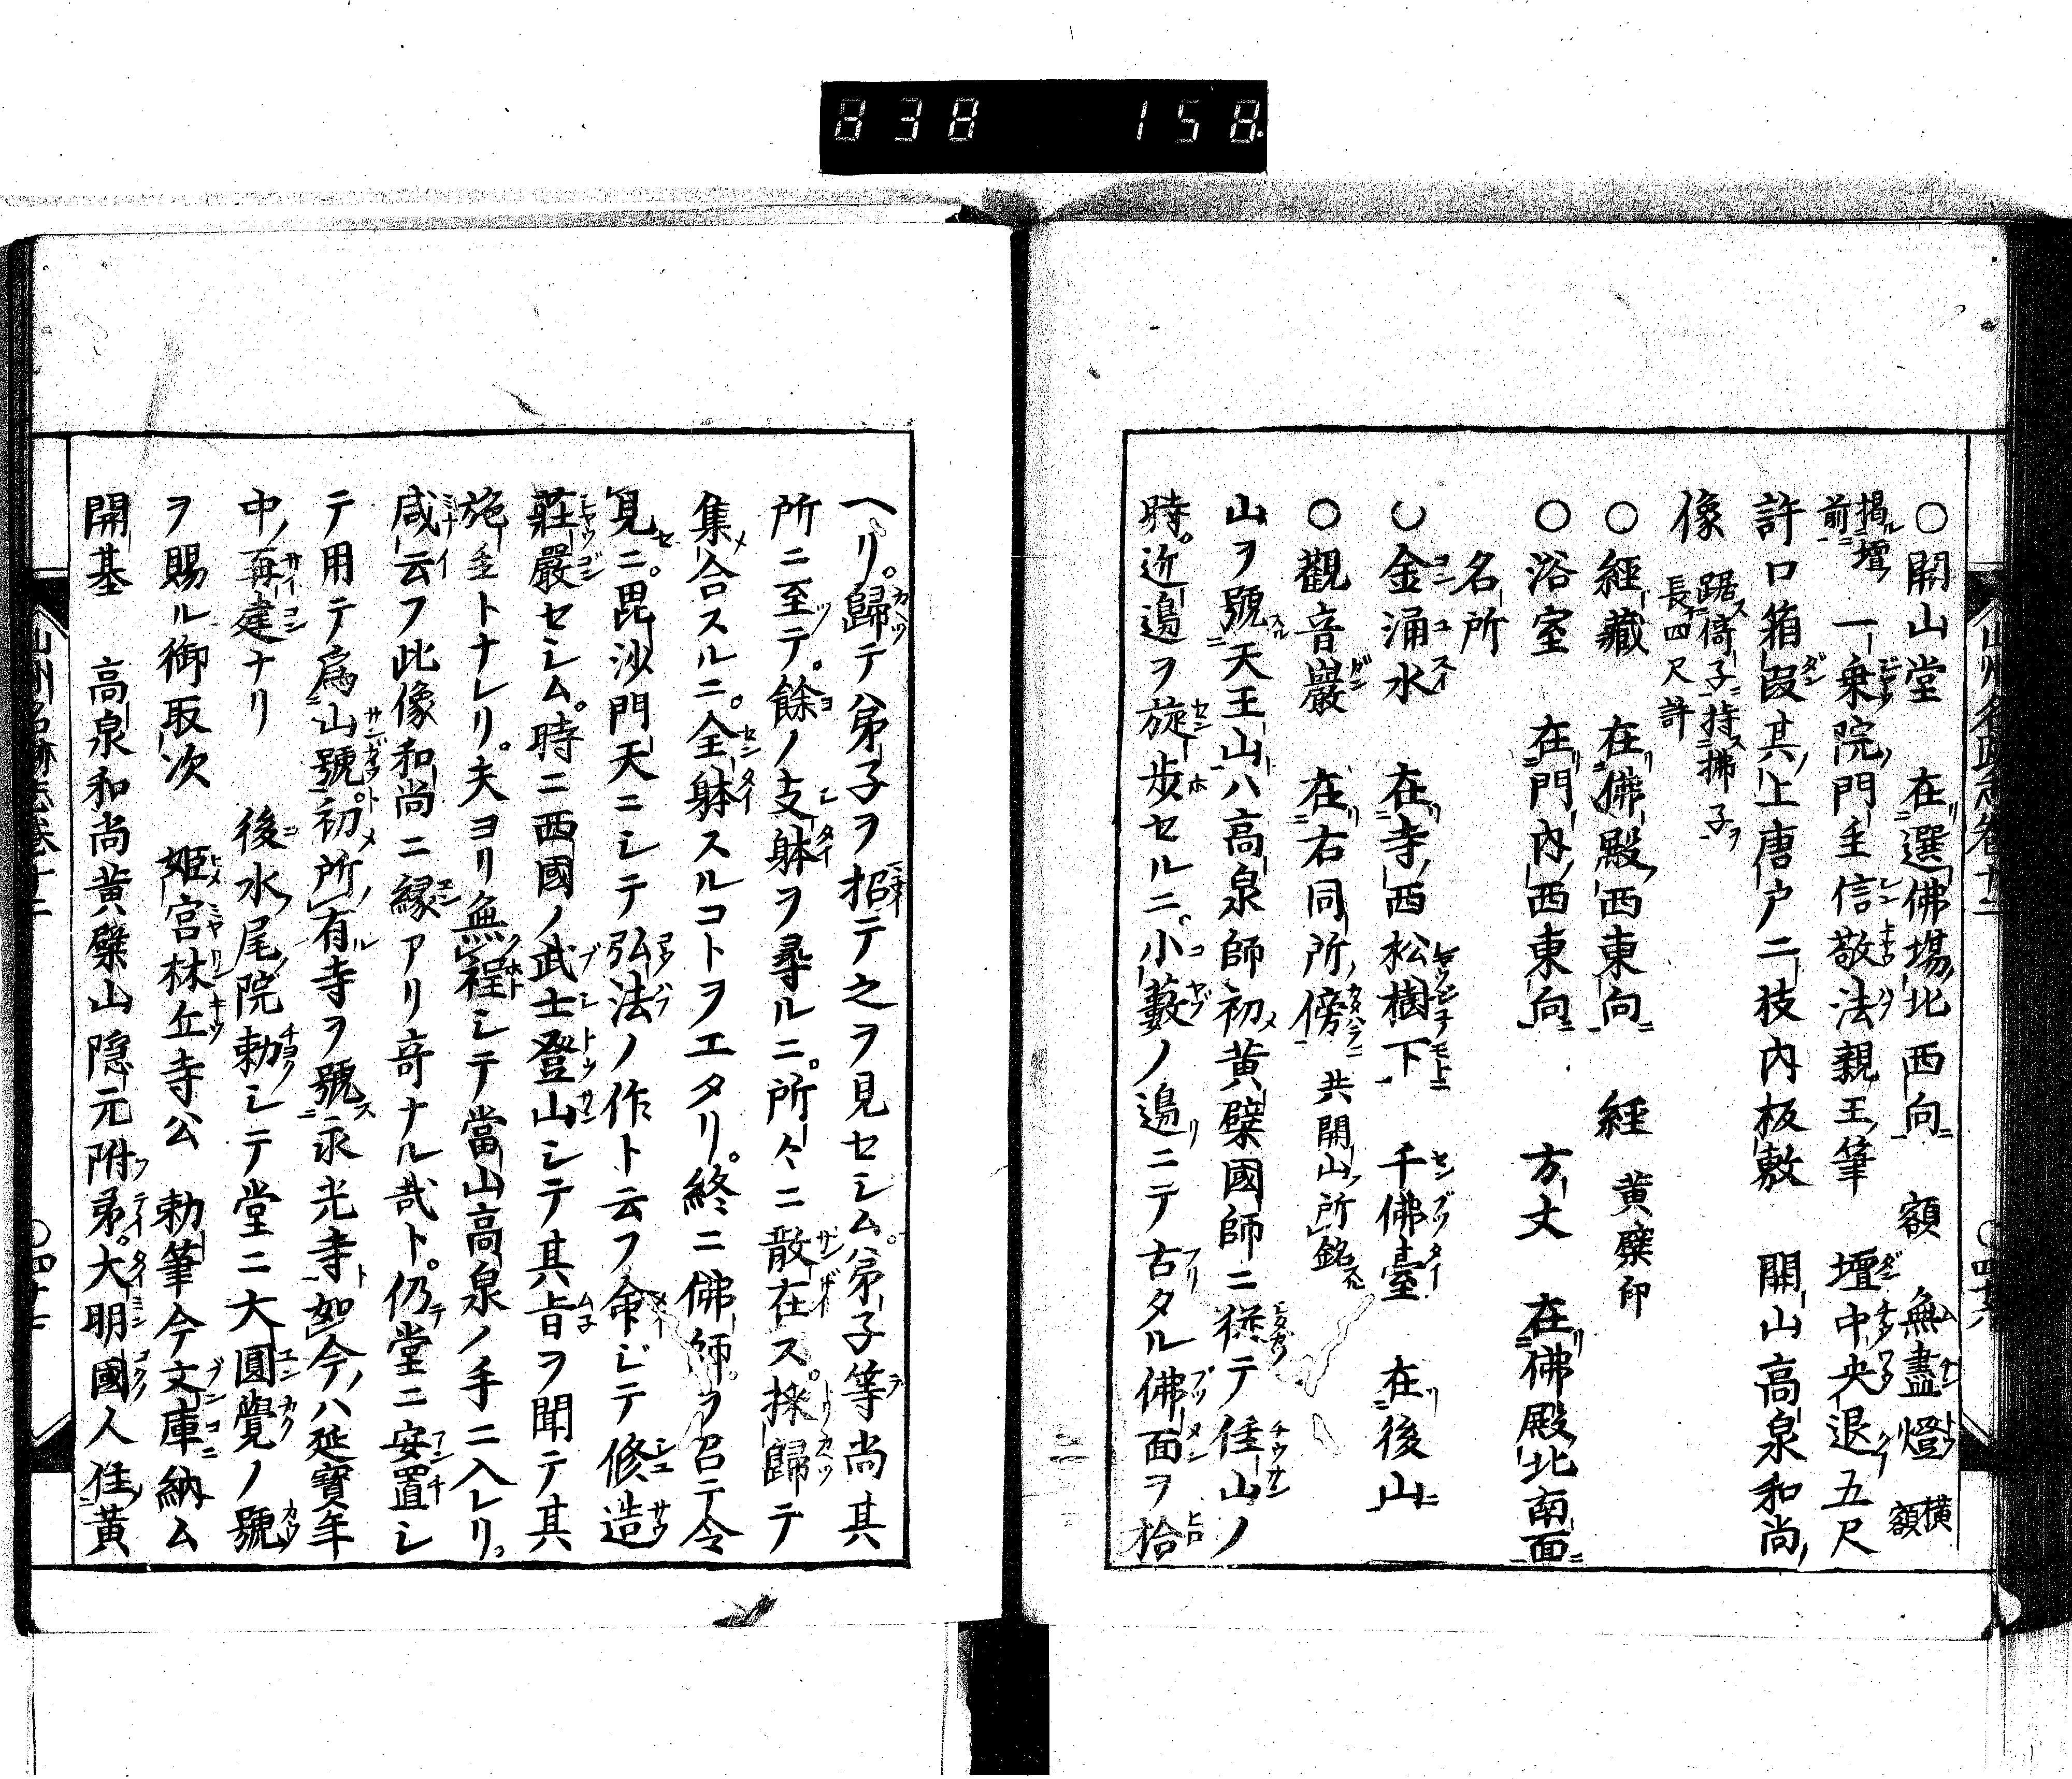 838 158
○開山堂 在選佛場北西向 額 無盡燈 横額
掲壇前 一乗院門主信敬法親王筆 壇中央退五尺
許口箱段其上唐戸二枝内板敷 開山高泉和尚
像 踞倚子持拂子 長四尺許
○經藏 在佛殿西東向 經 黄檗印
○浴室 在門内西東向 方丈 在佛殿北南面
名所
○金涌水 在寺西松樹下 千佛臺 在後山
○觀音巖 在右同所傍 共開山所銘
山ヲ號天王山ハ高泉師初黄檗國師ニ從テ住山ノ
時。近邉ヲ旋歩セルニ。小藪ノ邉ニテ古タル佛面ヲ拾
ヘリ。歸テ弟子ヲ招テ之ヲ見セシム。弟子等尚其
所ニ至テ。餘ノ支躰ヲ尋ルニ。所々ニ散在ス。採歸テ
集合スルニ。全躰スルコトヲエタリ。終ニ佛師ヲ召テ令
見ニ。毘沙門天ニシテ弘法ノ作ト云フ命ジテ修造
莊嚴セシム。時ニ西國ノ武士登山シテ其旨ヲ聞テ其
施主トナレリ。夫ヨリ無程シテ當山高泉ノ手ニ入レリ。
咸云フ此像和尚ニ縁アリ奇ナル哉ト。仍堂ニ安置シ
テ用テ爲山號。初所有寺ヲ號永光寺如今ハ延寶年
中再建ナリ 後水尾院勅シテ堂ニ大圓覺ノ號
ヲ賜ル御取次 姫宮林丘寺公 勅筆今文庫納ム
開基 高泉和尚黄檗山隠元附弟。大明國人住黄
山州名跡志巻十二 ○四十六
山州名跡志巻十二 ○四十七